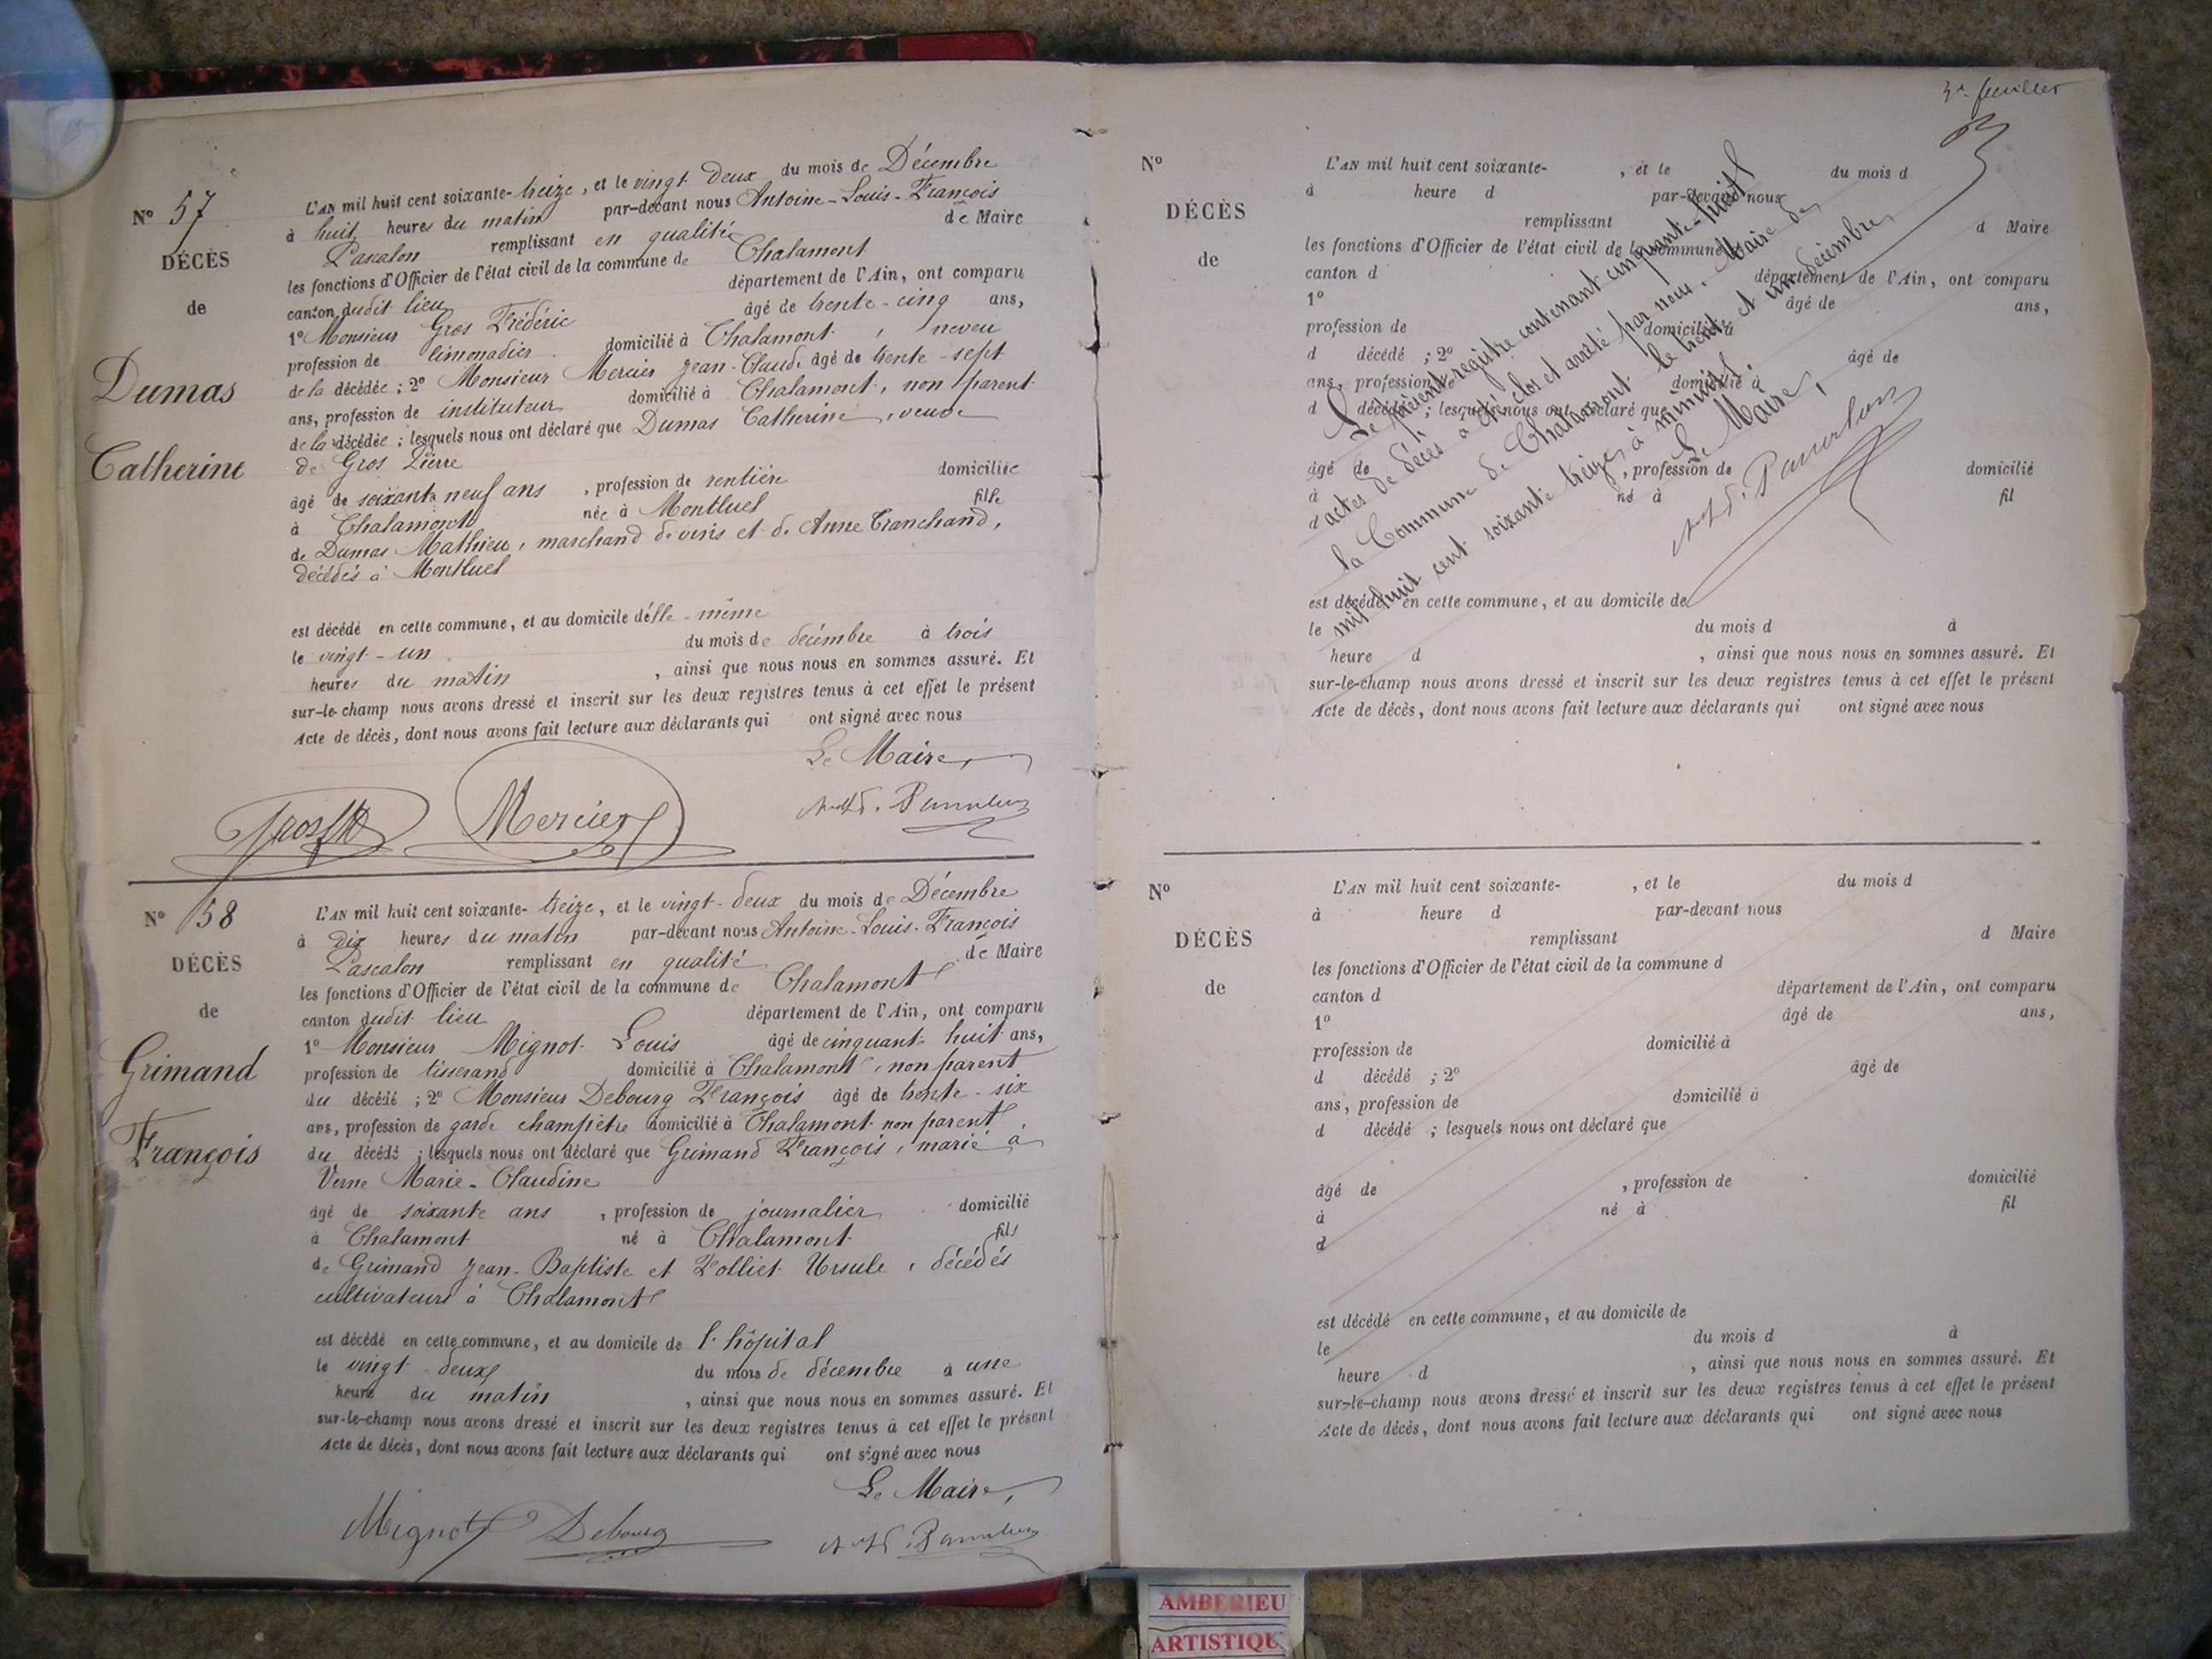 N° 57
DÉCÈS
de
Dumas
Catherine
L'AN mil huit cent soixante-treize, et le vingt deux du mois de Décembre
à huit heures du matin par-devant nous Antoine-Louis-François
Pascalon remplissant en qualité de Maire
les fonctions d'Officier de l'état civil de la commune de Chalamont
canton dudit lieu département de l'Ain, ont comparu
1° Monsieur Gros Frédéric âgé de trente-cinq ans,
profession de limonadier domicilié à Chalamont, neveu
de la décédée ; 2° Monsieur Mercier Jean-Claude âgé de trente-sept
ans, profession de instituteur domicilié à Chalamont, non parent
de la décédée ; lesquels nous ont déclaré que Dumas Catherine, veuve
de Gros Pierre
âgé de soixante neuf ans , profession de rentière domiciliée
à Chalamont née à Montluel fille
de Dumas Mathieu, marchand de vins et de Anne Tranchand,
décédés à Montluel
est décédé en cette commune, et au domicile d'elle-même
le vingt-un du mois de décembre à trois
heures du matin , ainsi que nous nous en sommes assuré. Et
sur-le-champ nous avons dressé et inscrit sur les deux registres tenus à cet effet le présent
Acte de décès, dont nous avons fait lecture aux déclarants qui ont signé avec nous
Le Maire,
Mercier
N° 58
DÉCÈS
de
Grimand
François
L'AN mil huit cent soixante-treize, et le vingt-deux du mois de Décembre
à dix heures du matin par-devant nous Antoine-Louis-François
Pascalon remplissant en qualité de Maire
les fonctions d'Officier de l'état civil de la commune de Chalamont
canton dudit lieu département de l'Ain, ont comparu
1° Monsieur Mignot Louis âgé de cinquante huit ans,
profession de tisserand domicilié à Chalamont, non parent
du décédé ; 2° Monsieur Debourg François âgé de trente-six
ans, profession de garde champêtre domicilié à Chalamont non parent
du décédé ; lesquels nous ont déclaré que Grimand François, marié à
Verne Marie-Claudine
âgé de soixante ans , profession de journalier domicilié
à Chalamont né à Chalamont fils
de Grimand Jean-Baptiste et Folliet Ursule, décédés
cultivateurs à Chalamont
est décédé en cette commune, et au domicile de l'hôpital
le vingt-deux du mois de décembre à une
heure du matin , ainsi que nous nous en sommes assuré. Et
sur-le-champ nous avons dressé et inscrit sur les deux registres tenus à cet effet le présent
Acte de décès, dont nous avons fait lecture aux déclarants qui ont signé avec nous
Le Maire,
Mignot Debourg
feuillet
N°
DÉCÈS
de
L'AN mil huit cent soixante- , et le du mois d
à heure d par-devant nous
remplissant d Maire
les fonctions d'Officier de l'état civil de la commune d
canton d département de l'Ain, ont comparu
1° âgé de ans,
profession de domicilié à
d décédé ; 2° âgé de
ans, profession de domicilié à
d décédé ; lesquels nous ont déclaré que
âgé de , profession de domicilié
à né à fil
d
est décédé en cette commune, et au domicile de
le du mois d à
heure d , ainsi que nous nous en sommes assuré. Et
sur-le-champ nous avons dressé et inscrit sur les deux registres tenus à cet effet le présent
Acte de décès, dont nous avons fait lecture aux déclarants qui ont signé avec nous
Le présent registre contenant cinquante-huit
actes de décès a été clos et arrêté par nous, Maire de
la Commune de Chalamont le trente et un décembre
mil huit cent soixante treize à minuit.
Le Maire,
N°
DÉCÈS
de
L'AN mil huit cent soixante- , et le du mois d
à heure d par-devant nous
remplissant d Maire
les fonctions d'Officier de l'état civil de la commune d
canton d département de l'Ain, ont comparu
1° âgé de ans,
profession de domicilié à
d décédé ; 2° âgé de
ans, profession de domicilié à
d décédé ; lesquels nous ont déclaré que
âgé de , profession de domicilié
à né à fil
d
est décédé en cette commune, et au domicile de
le du mois d à
heure d , ainsi que nous nous en sommes assuré. Et
sur-le-champ nous avons dressé et inscrit sur les deux registres tenus à cet effet le présent
Acte de décès, dont nous avons fait lecture aux déclarants qui ont signé avec nous
AMBERIEU
ARTISTIQU